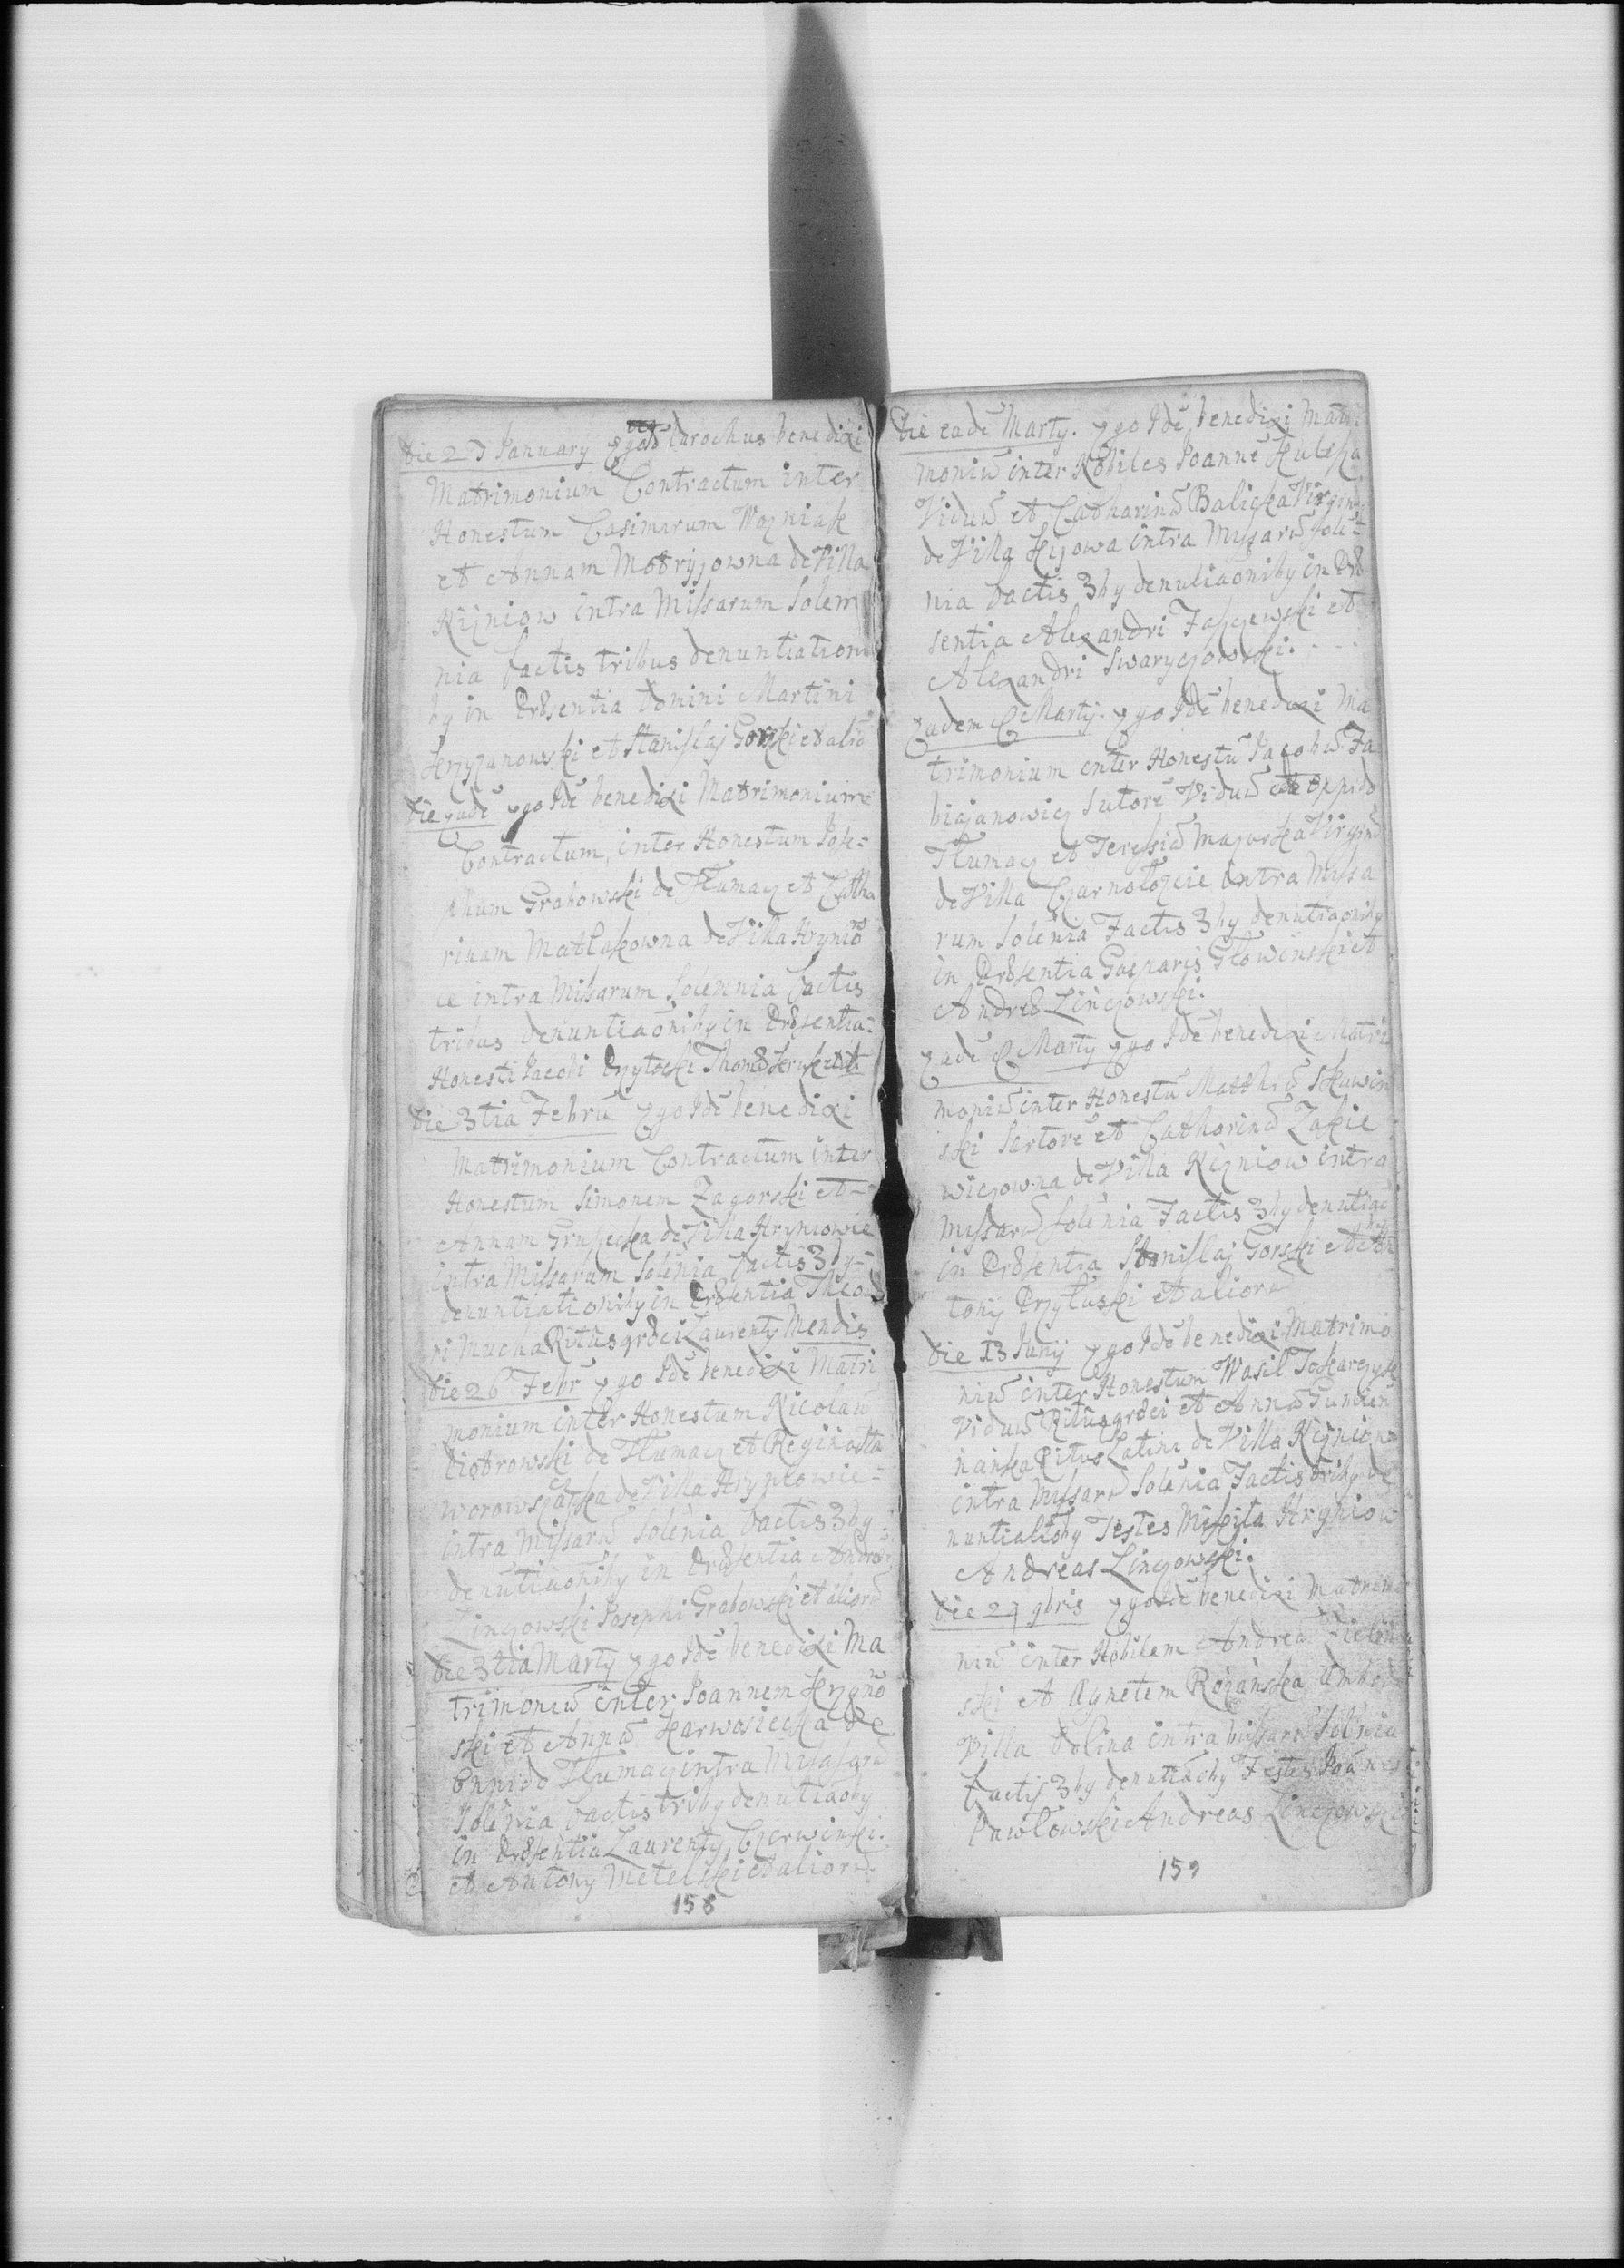 Die 27 January Ego Parochus benedixi
Matrimonium Contractum inter
Honestum Casimirum Wozniak
et Annam Motryjowna de Villa
Kijniow intra Missarum Solem
nia factis tribus denuntiationi
by in Præsentia Domini Martini
et Stanislaj Gorski et alio
Die eade Ego Ide benedixi Matrimonium
Contractum, inter Honestum Jose=
phum Grabowski de Tłumacz et Catha
rinam Matlakowna de Villa Hryniow
ce intra Missarum Solemnia factis
tribus denuntiaoniby in Præsentia
Honesti Jacobi Przyłocki Thomæ
Die 3tia Febru Ego Ide benedixi
Matrimonium Contractum inter
Honestum Simonem Zagorski et
Annam de Villa Hryniowie
intra Missarum Solenia factis 3by
denuntiationiby in Præsentia Theo
ri Mucha Ritus græci Laurenty Mendis
Die 26 Febr Ego Ide benedixi Matri
monium inter Honestum Nicolau
Piotrowski de Tłumacz et Regina
de Villa
intra Missaru Solenia factis 3by
denutiaoniby in Præsentia Andreæ
Linczowski Josephi Grabowski et alioru
Die 3tia Marty Ego Ide benedixi Ma
trimoniu inter Joannem
ski et Anna Karwosiecka de
Oppido Tłumacz intra Missaru
Solenia factis triby denutiaoby
in Præsentia Laurenty Czerwinski
et Antony Metelski et alioru
158
Die eade Marty. Ego Ide benedixi Matri
moniu inter Nobiles Joanne
Viduu et Catharina Balicka Virgine
de Villa intra Missaru Sole
nia factis 3by denutiaoniby in Præ
sentia Alexandri et
Alexandri Swaryczowski.
Eadem Marty. Ego Ide benedixi Ma
trimonium inter Honestu Jacobu Fa
bijanowicz Sutore Viduu de Oppido
Tłumacz et Teressia Majewska Virgine
de Villa Czarnołozcie intra Missa
rum Solenia Factis 3by denutiaoniby
in Præsentia Gasparis Głowinski et
Andreæ Linczowski.
Eade Marty Ego Ide benedixi Matri
moniu inter Honestu Matthiu Skuwin
ski Sartore et Catharina Zakie
wiczowna de Villa Kijniow intra
Missaru Solenia Factis 3by denutiao
in Præsentia Stanislaj Gorski et An
tonij Przyłuski et alioru
Die 13 Junij Ego Ide benedixi Matrimo
niu inter Honestum Wasil Tokarczyk
Viduu Ritus græci et Anna
Ritus Latini de Villa Kijniow
intra Missaru Solenia Factis triby de
nuntiatioby Testes Mikita Hryniow
Andreas Linczowski.
Die 27 9bris Ego Ide benedixi Matrimo
niu inter Nobilem Andrea Zielin
ski et Agnetem Rozanska Ambo de
Villa Dolina intra Missaru Solenia
factis 3by denutiaoby Testes Joannes
Pawłowski Andreas Linczowski
159